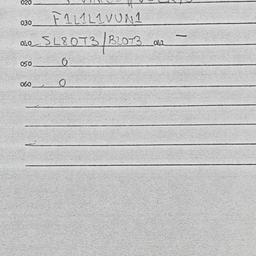 020
030 F1L1L1VUN1
040 SL8OT3/BLOT3 042 –
050 0
060 0